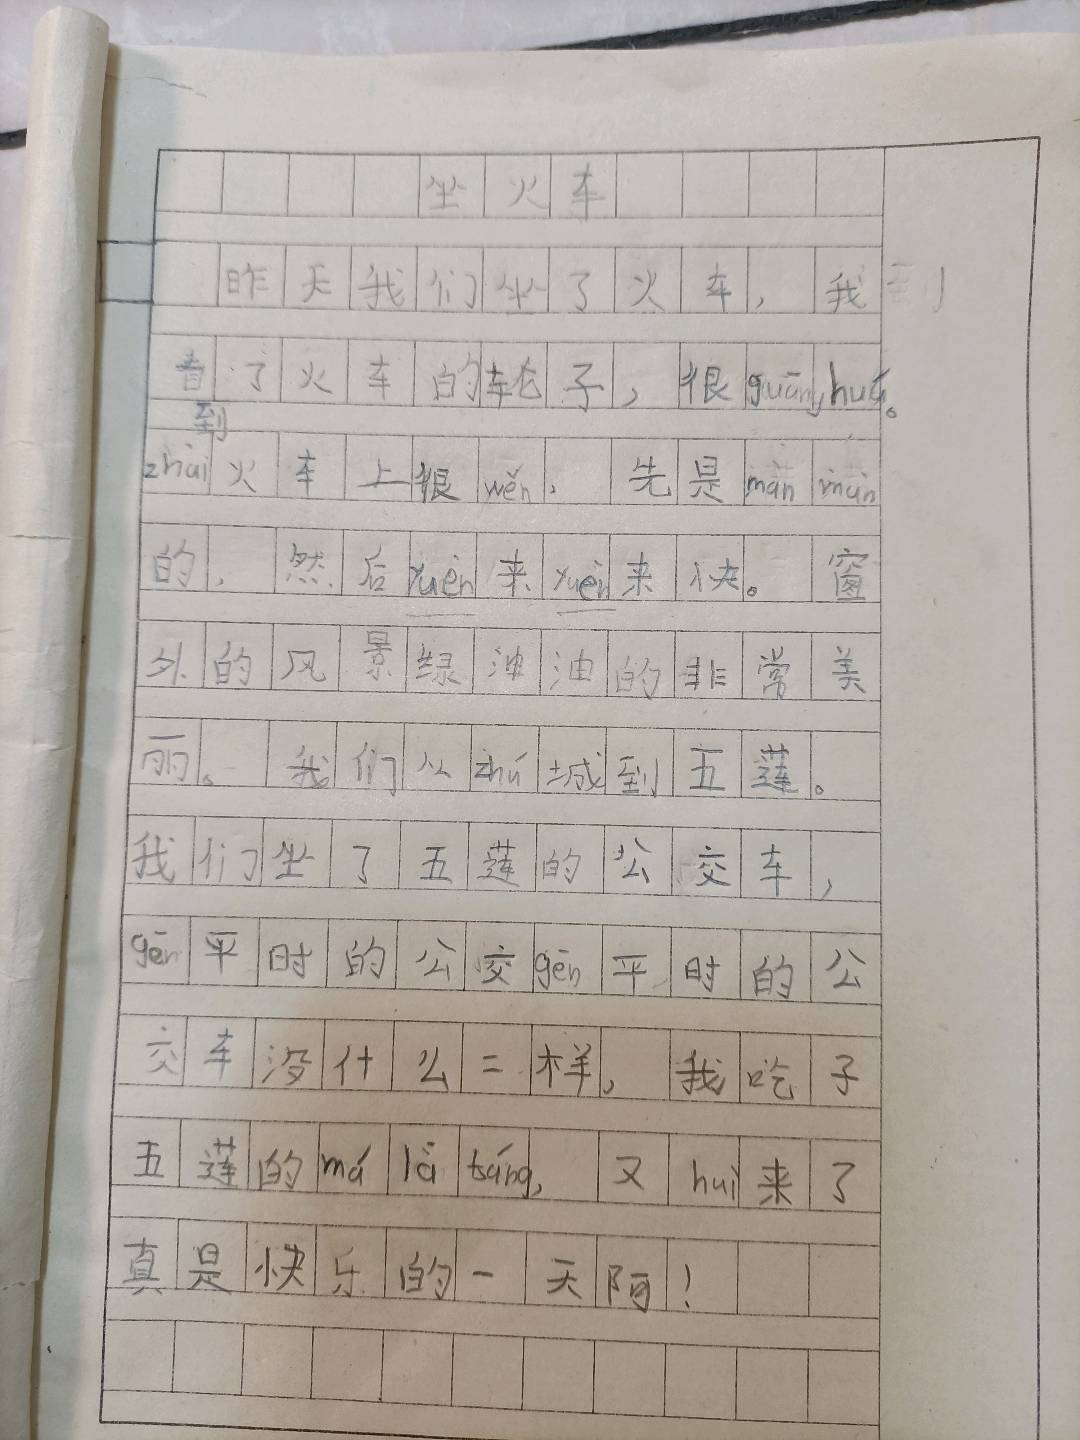 坐火车
昨天我们坐了火车，我
看到了火车的轮子，很guāng huá。
zhài火车上很wěn，先是màn màn
的，然后yuè n来yuè n来快。窗
外的风景绿油油的非常美
丽。我们从zhū城到五莲。
我们坐了五莲的公交车，
gēn平时的公交gēn平时的公
交车没什么二样，我吃子
五莲的má là tāng，又huí来了
真是快乐的一天阿！